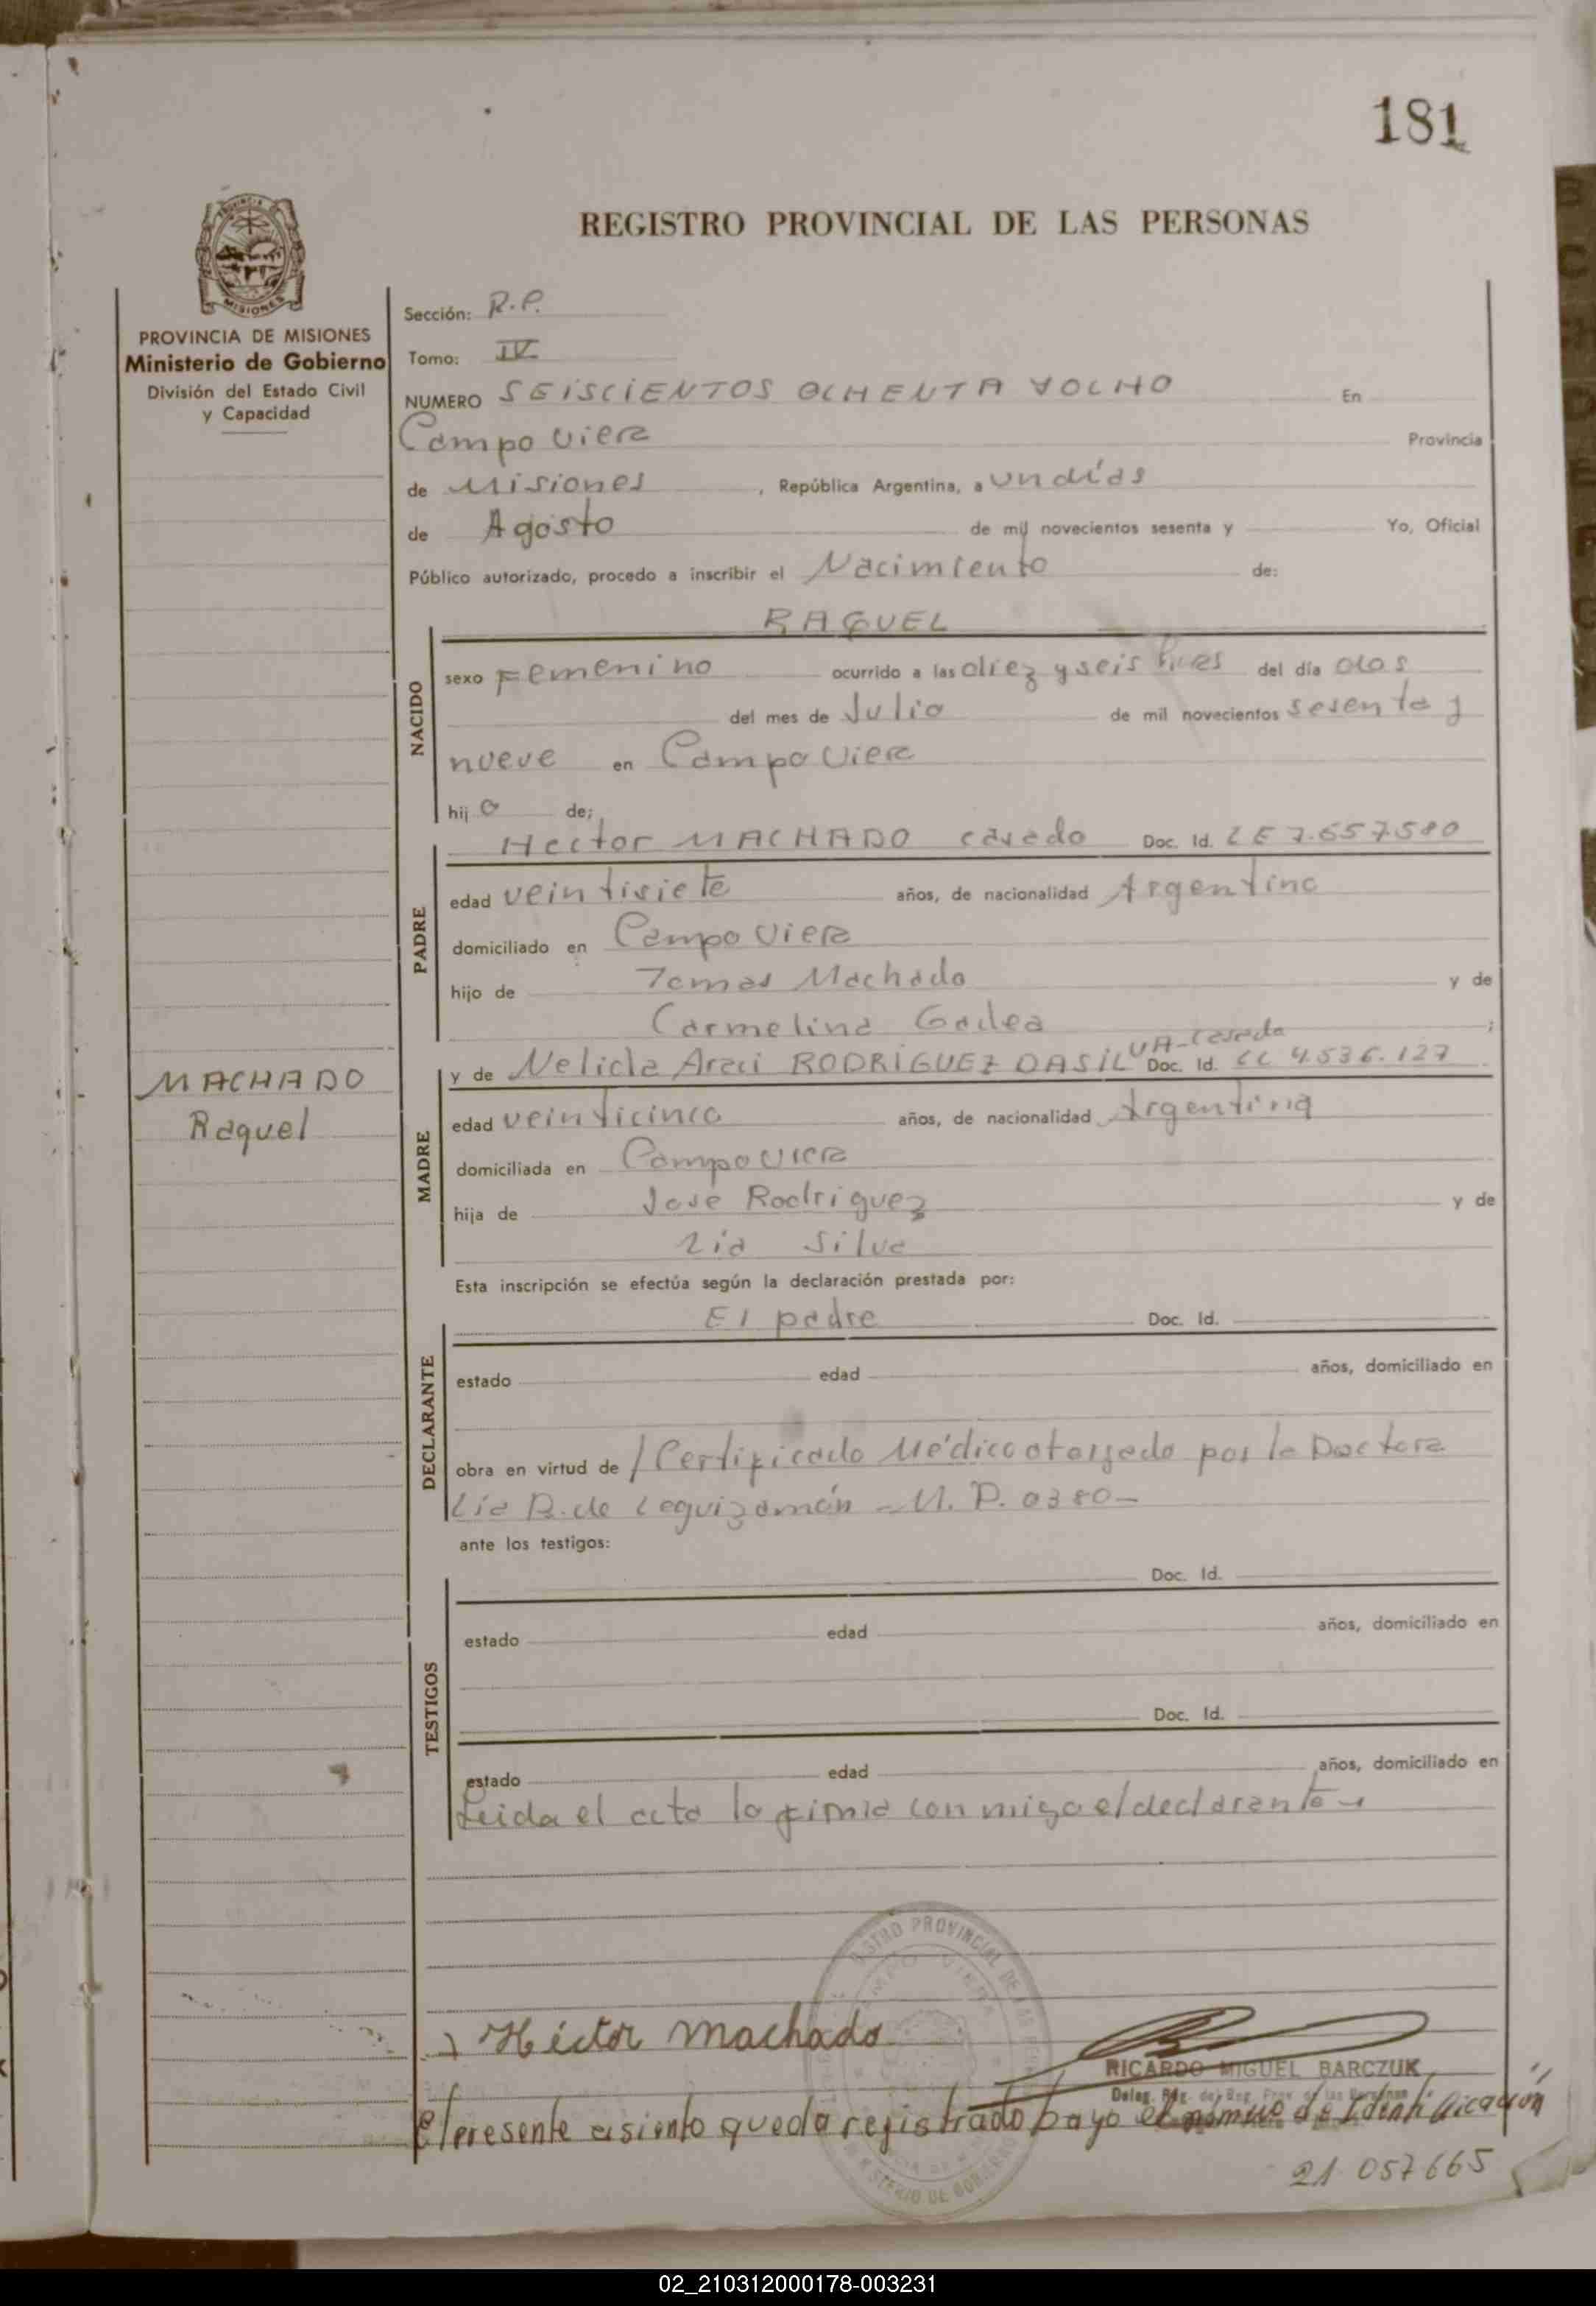 181
REGISTRO PROVINCIAL DE LAS PERSONAS
MISIONES
PROVINCIA DE MISIONES
Ministerio de Gobierno
División del Estado Civil
y Capacidad
Sección: R.P.
Tomo: IV
NUMERO SEISCIENTOS OCHENTA YOCHO En
Campo Viera Provincia
de Misiones, República Argentina, a un días
de Agosto de mil novecientos sesenta y Yo, Oficial
Público autorizado, procedo a inscribir el Nacimiento de:
RAQUEL
NACIDO
sexo Femenino ocurrido a las diez y seis hores del día dos
del mes de Julio de mil novecientos sesenta y
nueve en Campo Viera
hij a de;
PADRE
Hector MACHADO casado Doc. Id. LE 7.657.580
edad veintisiete años, de nacionalidad Argentino
domiciliado en Campo Viera
hijo de Tomas Machado y de
Carmelina Gadea ;
MACHADO
Raquel
MADRE
y de Nelida Araci RODRIGUEZ DASILVA-Casada Doc. Id. LC 4.536.127
edad veinticinco años, de nacionalidad Argentina
domiciliada en Campo Viera
hija de José Rodriguez y de
Lia Silva
Esta inscripción se efectúa según la declaración prestada por:
DECLARANTE
El padre Doc. Id.
estado edad años, domiciliado en
obra en virtud de / Certificado Médico otorgado por la Doctora
Lía B. de Leguizamón - M. P. 0380-
ante los testigos:
TESTIGOS
Doc. Id.
estado edad años, domiciliado en
Doc. Id.
estado edad años, domiciliado en
Leida el acta la firma con migo el declarante
Héctor Machado
RICARDO MIGUEL BARCZUK
El presente asiento queda registrado bayo el número de Identificación
21 057665
02_210312000178-003231